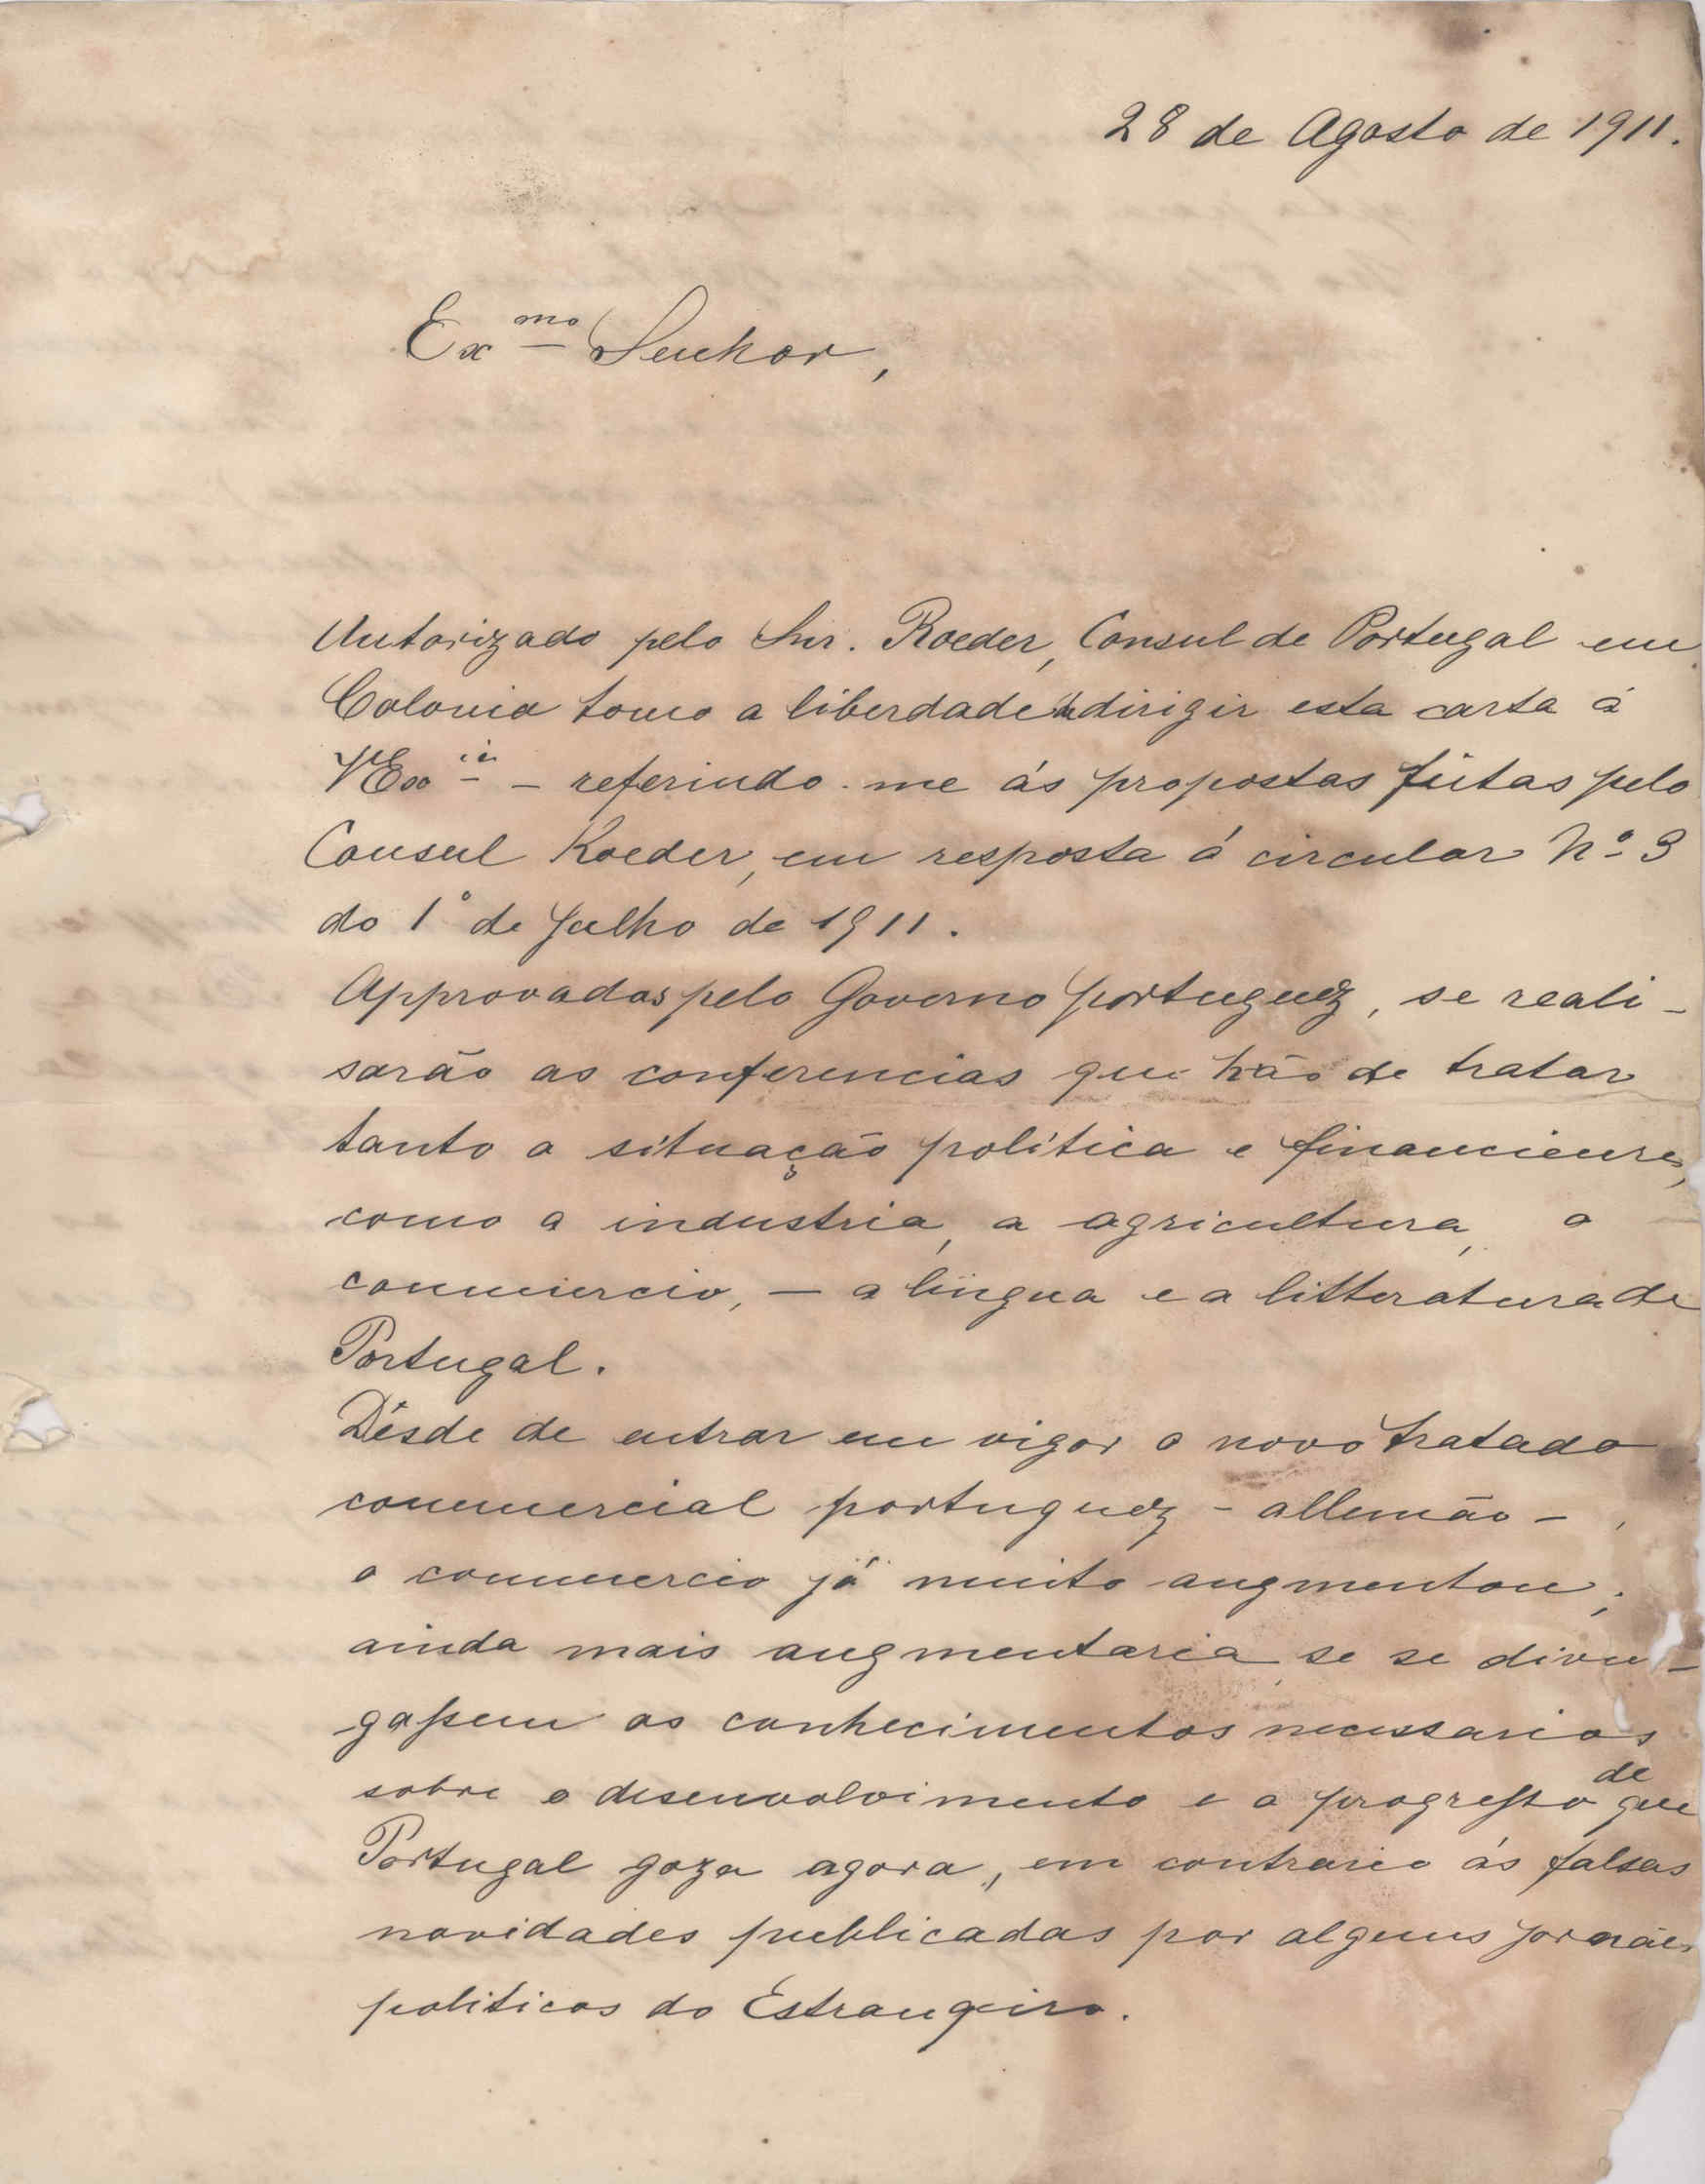 28 de Agosto de 1911.
Exmo Senhor,
Autorizado pelo Snr. Roeder, Consul de Portugal em
Colonia tomo a liberdade de dirigir esta carta á
VExcia – referindo-me ás propostas feitas pelo
Consul Roeder, em resposta á circular No 3
do 1o de Julho de 1911.
Approvadas pelo Governo portuguez, se reali-
sarão as conferencias que hão de tratar
tanto a situação política e
como a industria, a agricultura, o
commercio, – a lingua e a litteratura de
Portugal.
Désde de entrar em vigor o novo tratado
commercial portuguez - allemão – ,
o commercio já muito augmentou;
ainda mais augmentaria, se se divul-
gassem os conhecimentos necessarios
sobre o desenvolvimento e o progresso de que
Portugal goza agora, em contrario ás falsas
novidades publicadas por alguns jornáes
politicos do Estrangeiro.